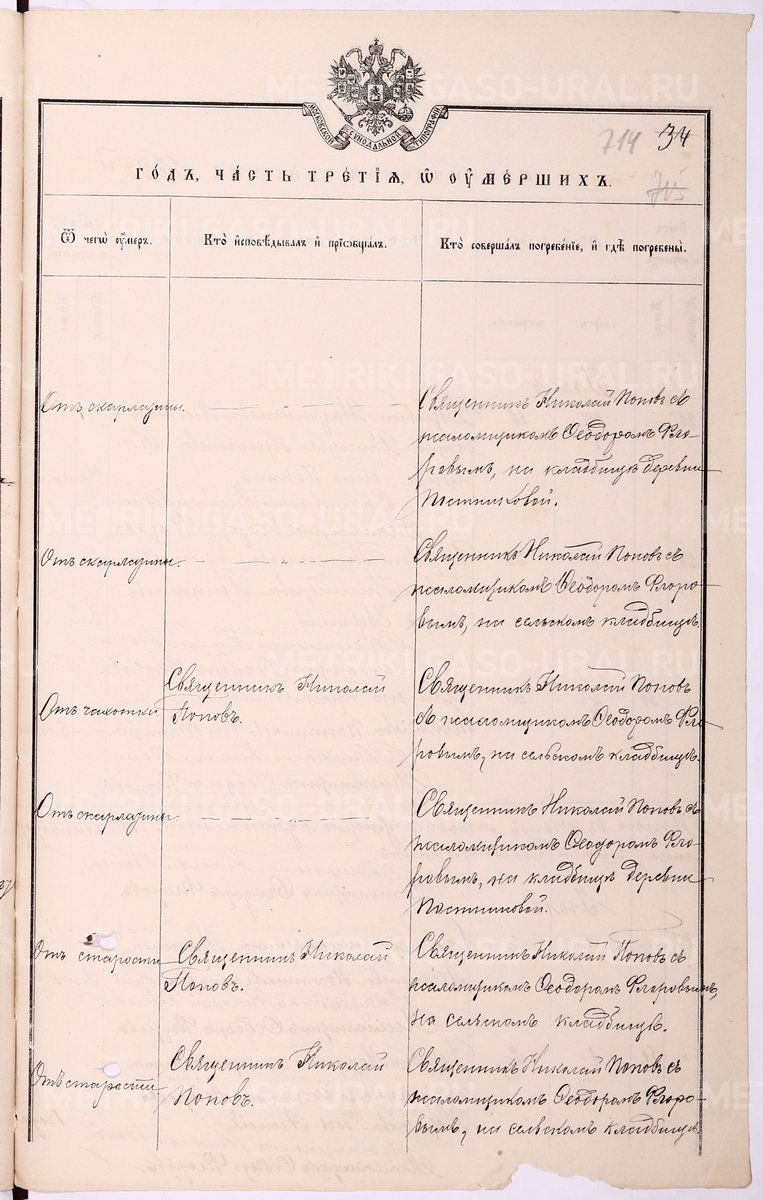 МОСКОВСКОЙ СѴНОДАЛЬНОЙ ТИПОГРАФІИ
714 34
715
ГО́ДЪ, ЧА́СТЬ ТРЕ́ТІѦ, Ѡ҆ ОУ҆МЕ́РШИХЪ.
Ѿ чегѡ̀ оу҆́меръ.
Кто̀ и҆сповѣ́дывалъ и҆ прїѡбща́лъ.
Кто̀ соверша́лъ погребе́нїе, и҆ гдѣ̀ погребены̀.
Отъ скарлатины.
Священникъ Николай Поповъ съ
псаломщикомъ Ѳеодоромъ Фло-
ровымъ, на кладбищѣ деревни
Постниковой.
Отъ скарлатины.
Священникъ Николай Поповъ съ
псаломщикомъ Ѳеодоромъ Флоро-
вымъ, на сельскомъ кладбищѣ.
Отъ чахотки
Священникъ Николай
Поповъ.
Священникъ Николай Поповъ
съ псаломщикомъ Ѳеодоромъ Фло-
ровымъ, на сельскомъ кладбищѣ.
Отъ скарлатины.
Священникъ Николай Поповъ съ
псаломщикомъ Ѳеодоромъ Фло-
ровымъ, на кладбищѣ деревни
Постниковой.
Отъ старости
Священникъ Николай
Поповъ.
Священникъ Николай Поповъ съ
псаломщикомъ Ѳеодоромъ Флоровымъ,
на сельскомъ кладбищѣ.
Отъ старости
Священникъ Николай
Поповъ.
Священникъ Николай Поповъ съ
псаломщикомъ Ѳеодоромъ Флоро-
вымъ, на сельскомъ кладбищѣ.
METRIKI.GASO-URAL.RU